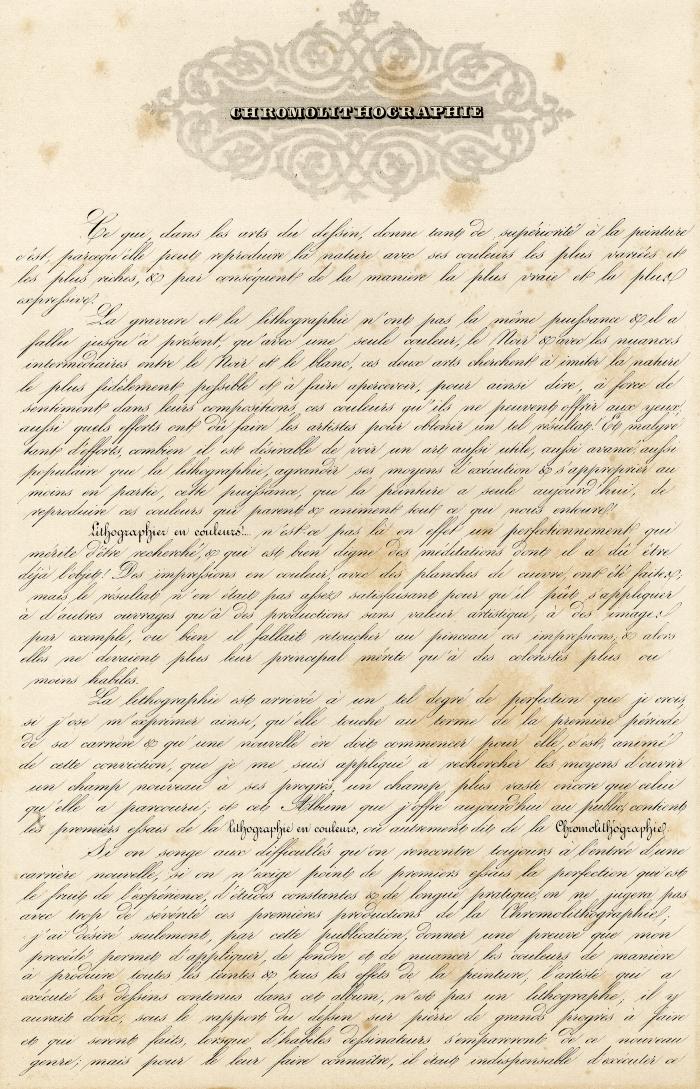 CHROMOLITHOGRAPHIE
Ce qui, dans les arts du dessin, donne tant de supériorité à la peinture
c'est, parcequ'elle peut reproduire la nature avec ses couleurs les plus variées et
les plus riches, & par conséquent de la manière la plus vraie et la plus
expressive.
La gravure et la lithographie n'ont pas la même puissance & il a
fallu jusqu'à présent, qu'avec une seule couleur, le Noir & avec les nuances
intermédiaires entre le Noir et le blanc, ces deux arts cherchent à imiter la nature
le plus fidèlement possible et à faire apercevoir, pour ainsi dire, à force de
sentiment dans leurs compositions, ces couleurs qu'ils ne peuvent offrir aux yeux,
aussi quels efforts ont dû faire les artistes pour obtenir un tel résultat! Et malgré
tant d'efforts, combien il est désirable de voir un art aussi utile, aussi avancé, aussi
populaire que la lithographie, agrandir ses moyens d'exécution & s'approprier au
moins en partie, cette puissance, que la peinture a seule aujourd'hui, de
reproduire ces couleurs qui parent & animent tout ce qui nous entoure!
Lithographier en couleurs!... n'est-ce pas là en effet un perfectionnement qui
mérite d'être recherché, & qui est bien digne des méditations dont il a dû être
déjà l'objet! Des impressions en couleur, avec des planches de cuivre, ont été faites;
mais le résultat n'en était pas assez satisfaisant pour qu'il pût s'appliquer
à d'autres ouvrages qu'à des productions sans valeur artistique, à des images
par exemple, ou bien il fallait retoucher au pinceau ces impressions, & alors
elles ne devaient plus leur principal mérite qu'à des coloristes plus ou
moins habiles.
La lithographie est arrivée à un tel degré de perfection que je crois,
si j'ose m'exprimer ainsi, qu'elle touche au terme de la première période
de sa carrière & qu'une nouvelle ère doit commencer pour elle, c'est, animé
de cette conviction, que je me suis appliqué à rechercher les moyens d'ouvrir
un champ nouveau à ses progrès, un champ plus vaste encore que celui
qu'elle a parcouru; et cet Album que j'offre aujourd'hui au public, contient
les premiers essais de la lithographie en couleurs, ou autrement dit de la Chromolithographie.
Si on songe aux difficultés qu'on rencontre toujours à l'entrée d'une
carrière nouvelle, si on n'exige point de premiers essais la perfection qui est
le fruit de l'expérience, d'études constantes & de longue pratique, on ne jugera pas
avec trop de sévérité ces premières productions de la Chromolithographie,
j'ai désiré seulement, par cette publication, donner une preuve que mon
procédé permet d'appliquer, de fondre, et de nuancer les couleurs de manière
à produire toutes les teintes & tous les effets de la peinture, l'artiste qui a
exécuté les dessins contenus dans cet album, n'est pas un lithographe, il y
aurait donc, sous le rapport du dessin sur pierre de grands progrès à faire
et qui seront faits, lorsque d'habiles dessinateurs s'empareront de ce nouveau
genre; mais pour le leur faire connaître, il était indispensable d'exécuter ce